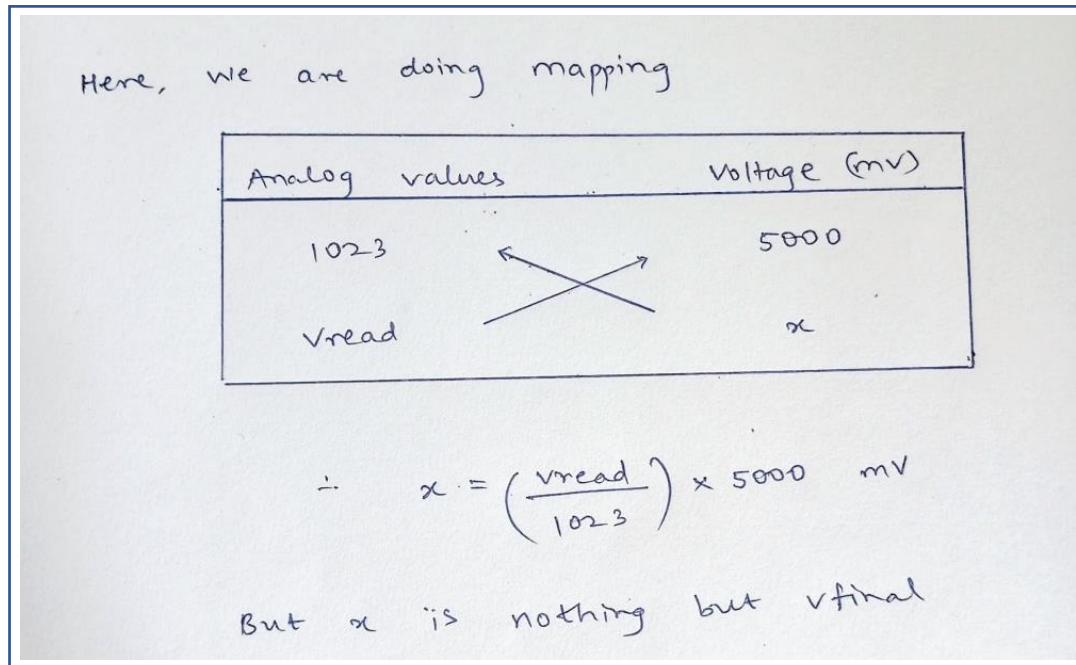 Here, we are doing mapping
Analog values Voltage (mv)
1023 5000
Vread x
∴ x = (vread / 1023) × 5000 mV
But x is nothing but vfinal